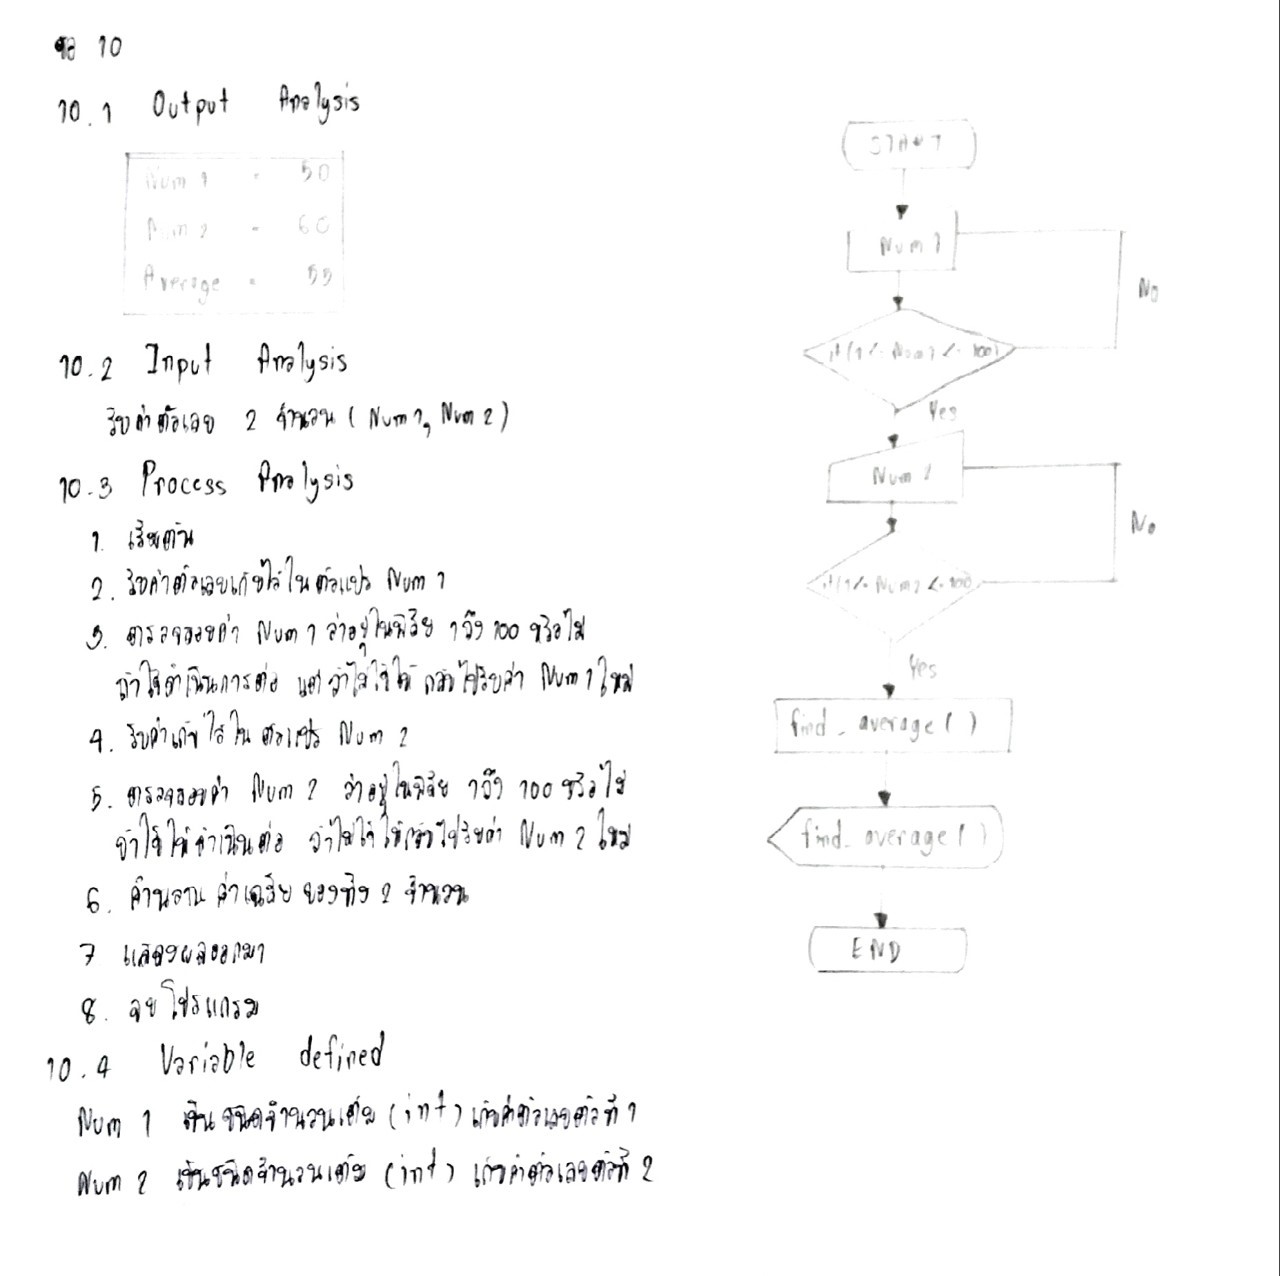 ข้อ 10
10.1 Output Analysis
Num 1 = 50
Num 2 = 60
Average = 55
10.2 Input Analysis
รับค่าตัวเลข 2 จำนวน (Num 1, Num 2)
10.3 Process Analysis
1. เริ่มต้น
2. รับค่าตัวเลขเก็บไว้ในตัวแปร Num 1
3. ตรวจสอบค่า Num 1 ว่าอยู่ในพิสัย 1 ถึง 100 หรือไม่
ถ้าใช่ดำเนินการต่อ แต่ถ้าไม่ใช่ให้ กลับไปรับค่า Num 1 ใหม่
4. รับค่าเก็บไว้ใน ตัวแปร Num 2
5. ตรวจสอบค่า Num 2 ว่าอยู่ในพิสัย 1 ถึง 100 หรือไม่
ถ้าใช่ให้ดำเนินต่อ ถ้าไม่ใช่ให้กลับไปรับค่า Num 2 ใหม่
6. คำนวณ ค่าเฉลี่ย ของทั้ง 2 จำนวน
7. แสดงผลออกมา
8. จบโปรแกรม
10.4 Variable defined
Num 1 เป็นชนิดจำนวนเต็ม (int) เก็บค่าตัวเลขตัวที่ 1
Num 2 เป็นชนิดจำนวนเต็ม (int) เก็บค่าตัวเลขตัวที่ 2
START
Num 1
No
if (1 <= Num 1 <= 100)
Yes
Num 2
No
if (1 <= Num 2 <= 100)
Yes
find_average()
find_average()
END